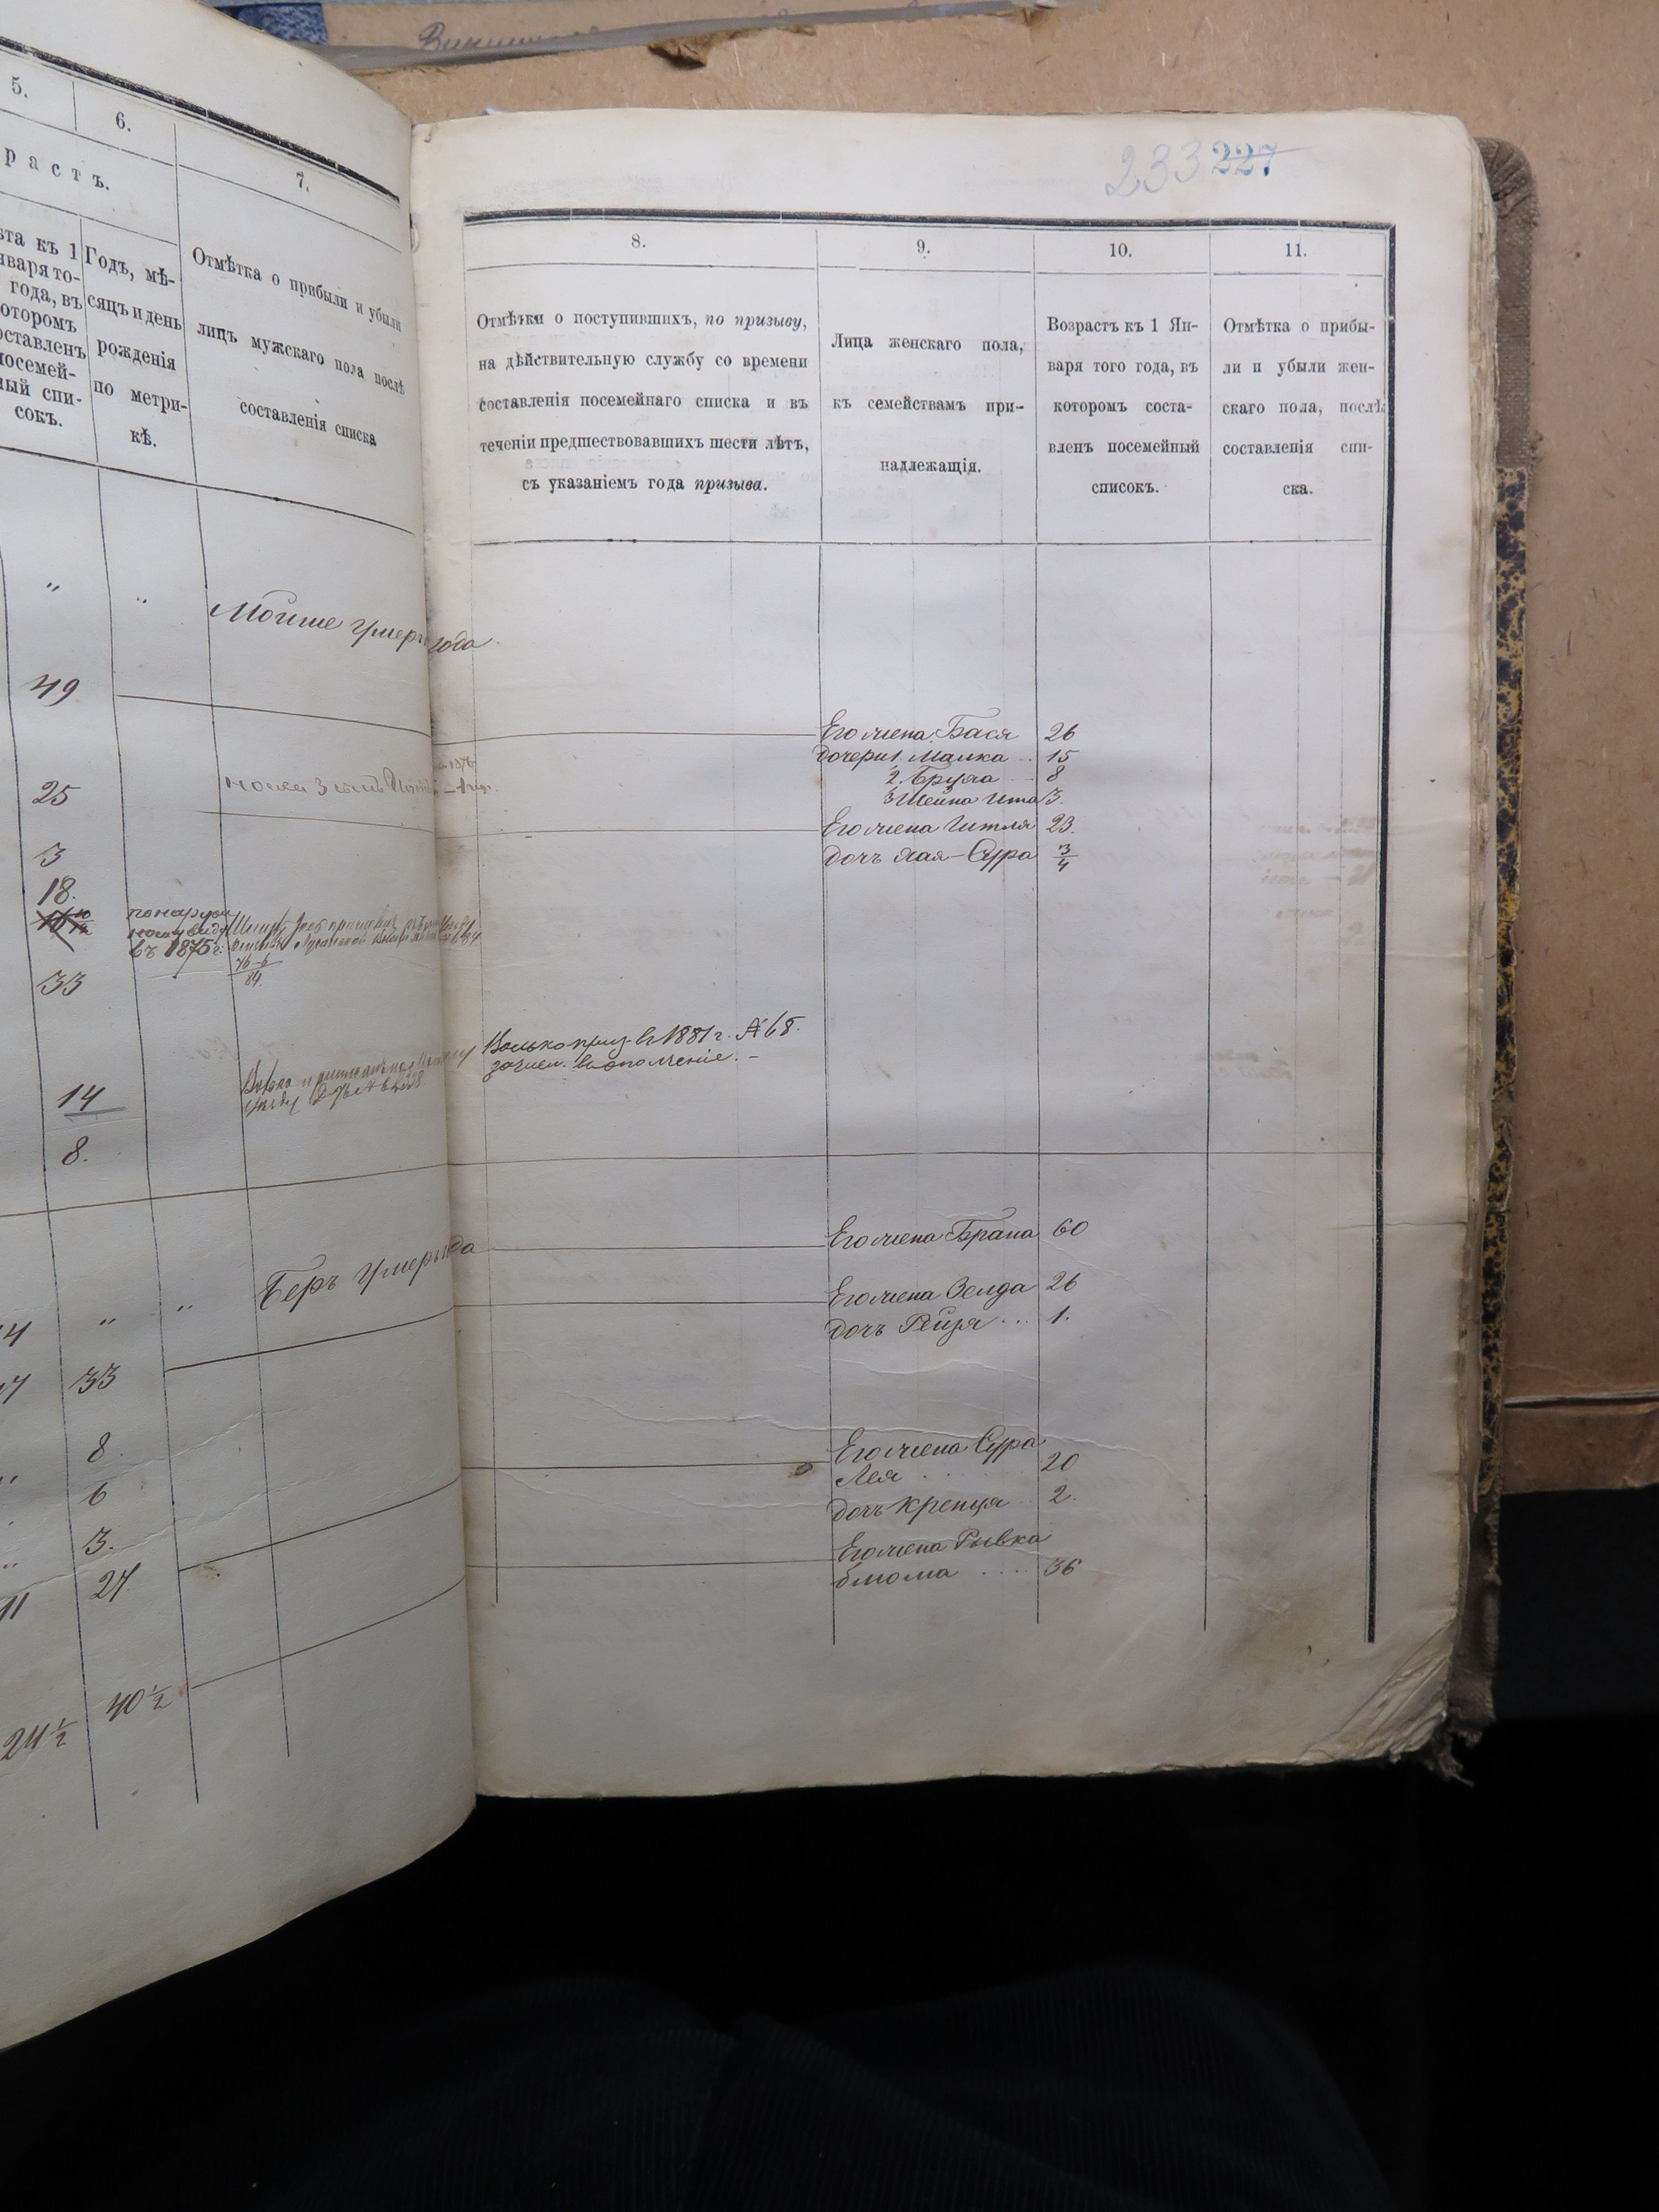 5.
6.
7.
растъ.
та къ 1
нваря то-
года, въ
оторомъ
оставленъ
посемей-
ный спи-
сокъ.
Годъ, мѣ-
сяцъ и день
рожденія
по метри-
кѣ.
Отмѣтка о прибыли и убыли
лицъ мужскаго пола послѣ
составленія списка
„ „ Мойше умеръ года
49
25
3
18.
въ 1875 г.
33
14
8.
4 „ „ Беръ умеръ
33
8
6
3.
11 27
24½ 40½
233 227
8.
9.
10.
11.
Отмѣтки о поступившихъ, по призыву,
на дѣйствительную службу со времени
составленія посемейнаго списка и въ
теченіи предшествовавшихъ шести лѣтъ,
съ указаніемъ года призыва.
Лица женскаго пола,
къ семействамъ при-
надлежащія.
Возрастъ къ 1 Ян-
варя того года, въ
которомъ соста-
вленъ посемейный
списокъ.
Отмѣтка о прибы-
ли и убыли жен-
скаго пола, послѣ
составленія спи-
ска.
Его жена Бася 26
дочери 1. Малка .. 15
2. Бруха ... 8
3 Шейна Ита 3.
Его жена Гитля 23.
дочь Хая-Сура 3/4
Волько приз. въ 1881 г. № 68.
зачисл. въ ополченіе. –
Его жена Брана 60
Его жена Зелда 26
дочь Рейзя ... 1.
Его жена Сура
Лея . 20
дочь Крейця 2.
Его жена Рывка
блюма .... 36